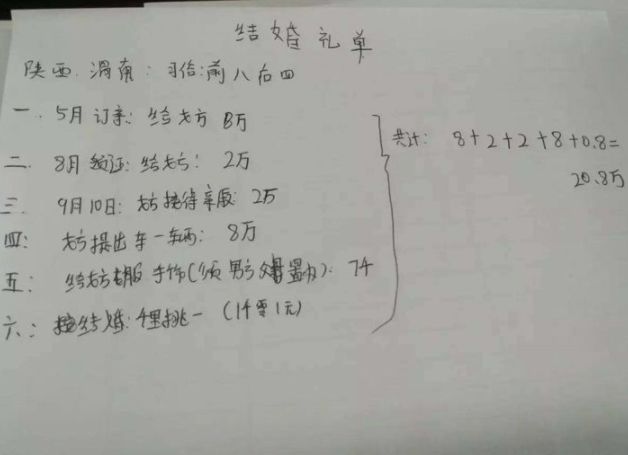 结婚礼单
陕西.渭南: 习俗:前八后四
一. 5月订亲: 给女方 8万
二. 8月领证: 给女方: 2万
三. 9月10日: 女方接待亲朋: 2万
四: 女方提出车一车辆: 8万
五: 给女方 手饰(须男方 置办): 7千
六: 千里挑一 (1千零1元)
共计: 8+2+2+8+0.8=
20.8万